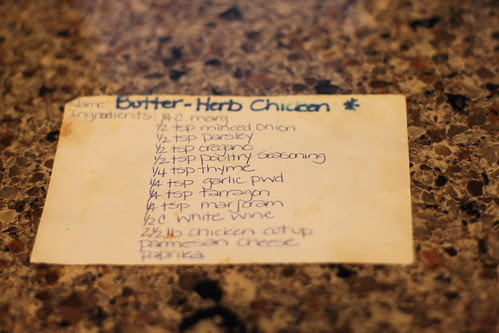 Name: Butter-Herb Chicken *
Ingredients: 1/4 c marg
1/2 tsp minced onion
1/2 tsp parsley
1/2 tsp oregano
1/2 tsp poultry seasoning
1/4 tsp thyme
1/4 tsp garlic pwd
1/4 tsp tarragon
1/4 tsp marjoram
1/2 c white wine
2 1/2 lb chicken cut up
parmesan cheese
paprika